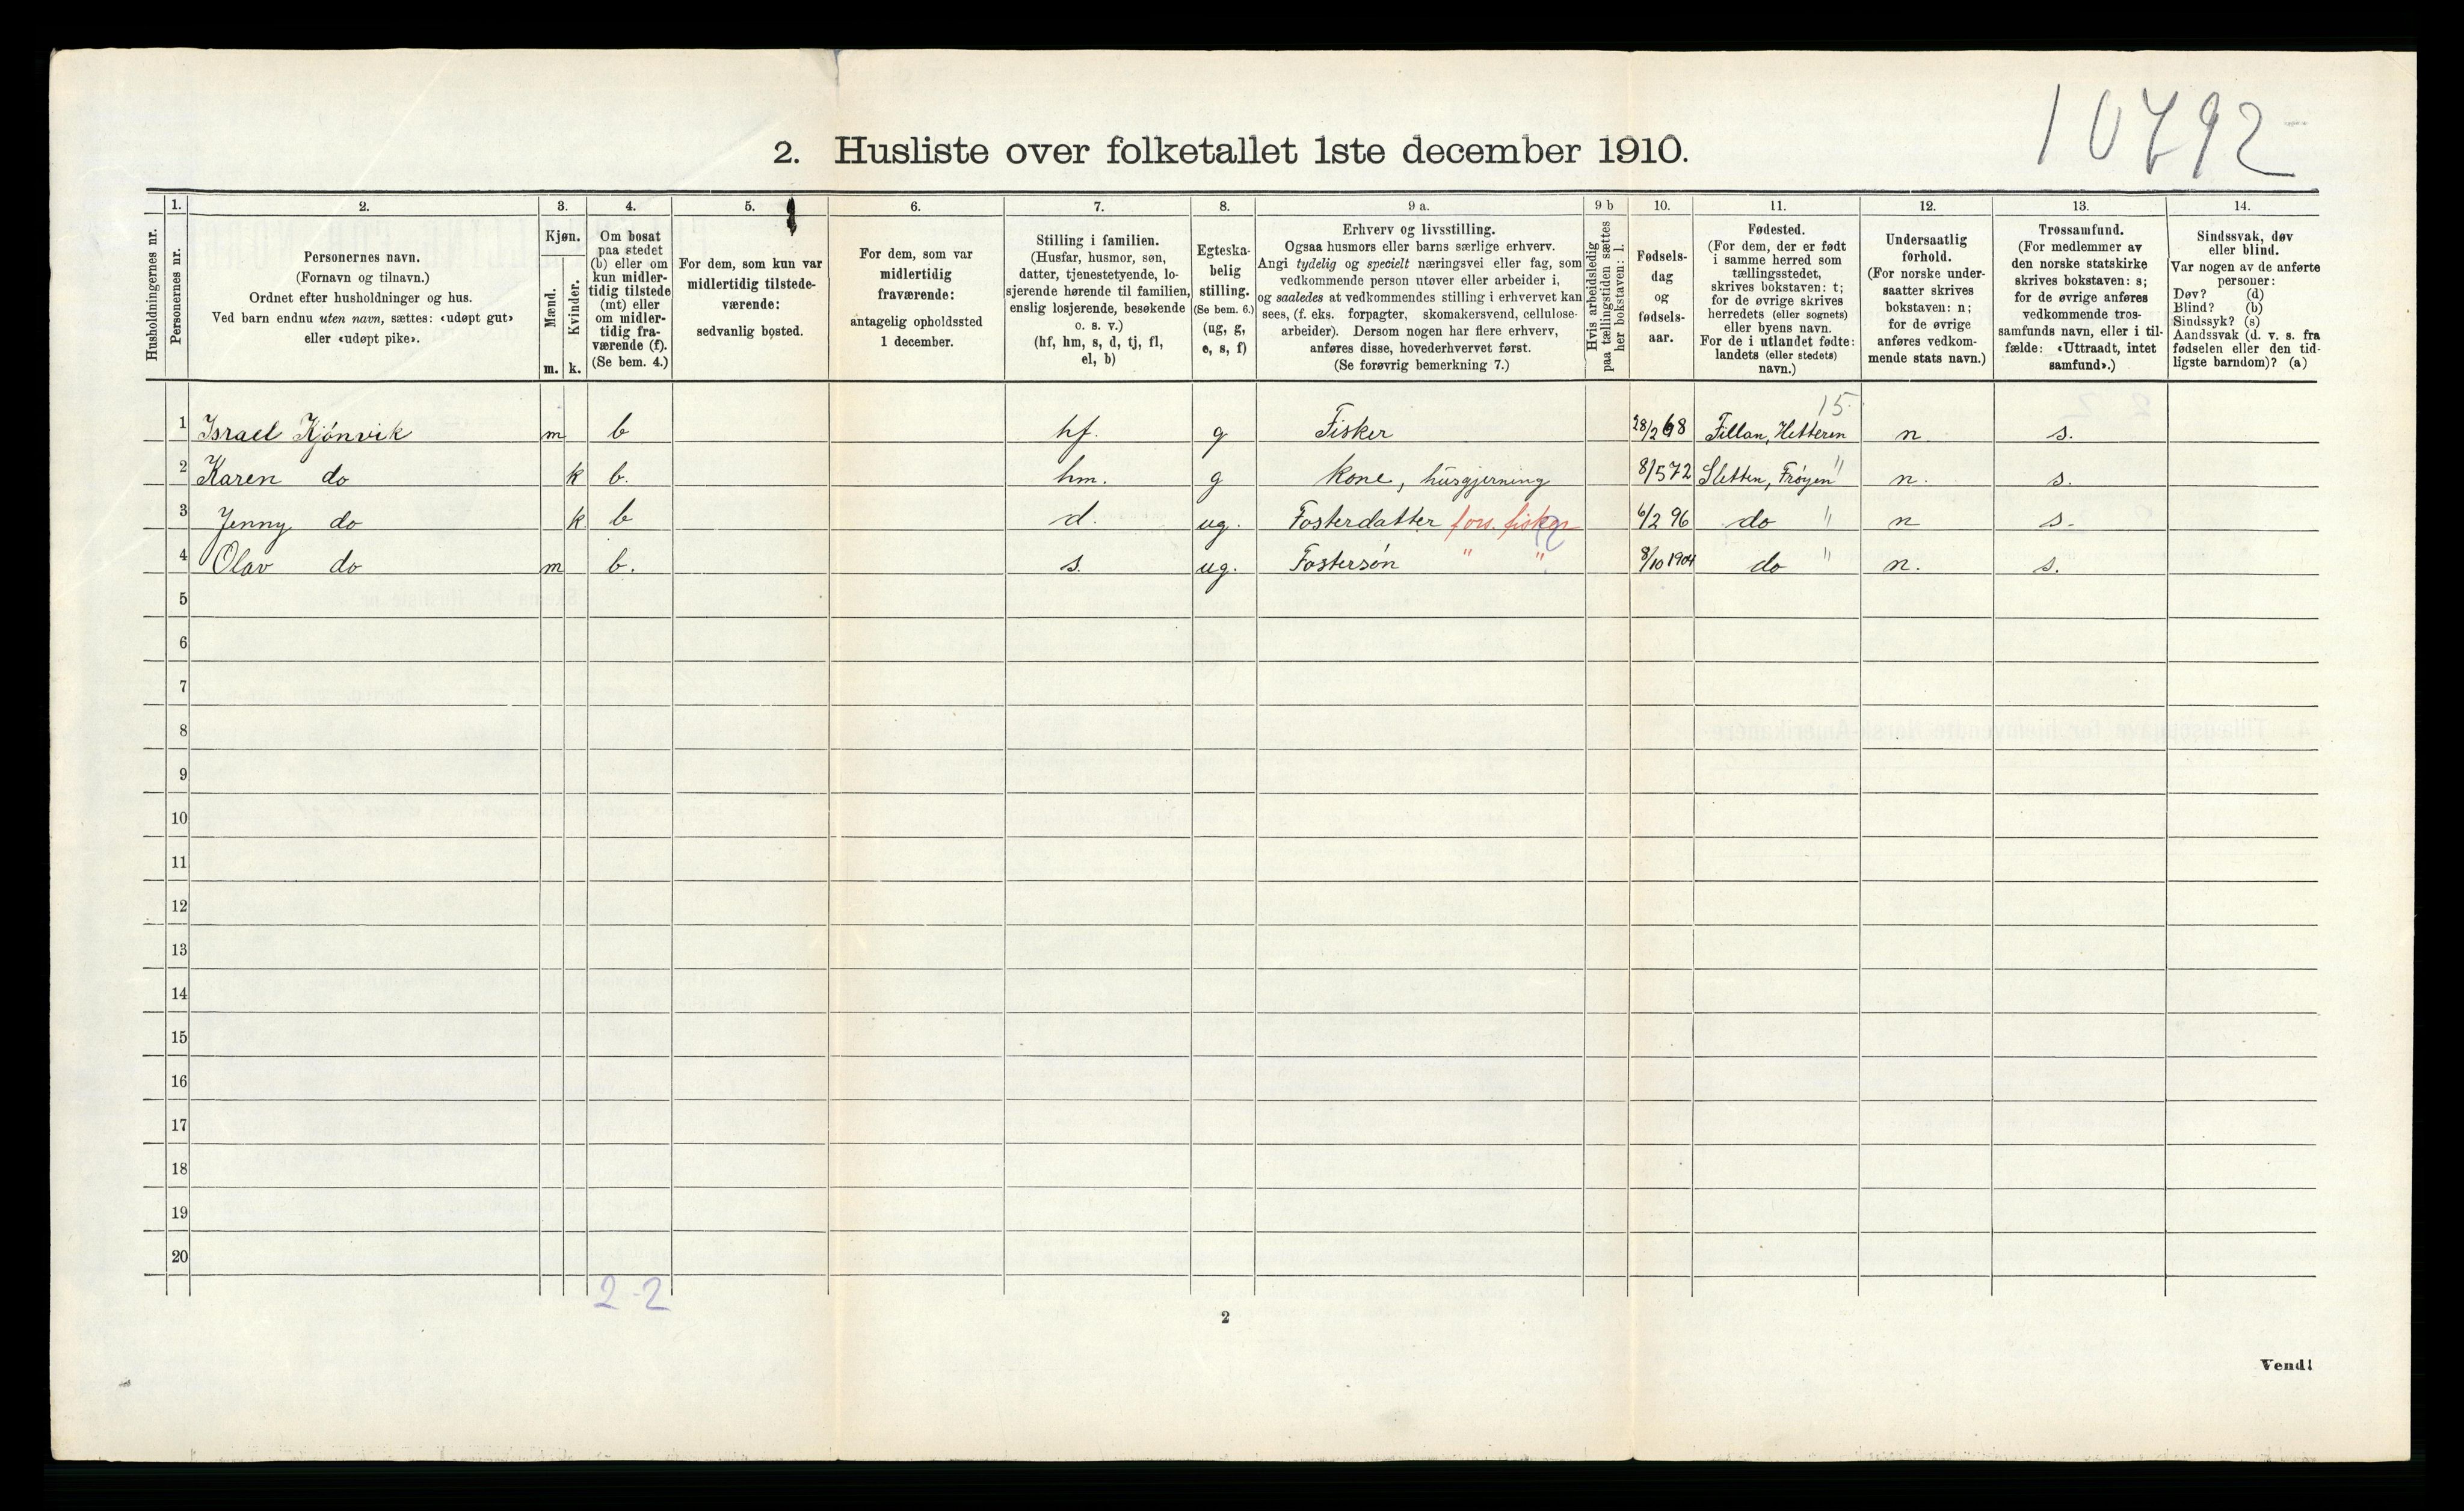 10792
2. Husliste over folketallet 1ste december 1910.
1. 2. 3. 4. 5. 6. 7. 8. 9 a. 9 b 10. 11. 12. 13. 14.
Husholdningernes nr.
Personernes nr.
Personernes navn.
(Fornavn og tilnavn.)
Ordnet efter husholdninger og hus.
Ved barn endnu uten navn, sættes: «udøpt gut»
eller «udøpt pike».
Kjøn.
Mænd.
Kvinder.
m. k.
Om bosat
paa stedet
(b) eller om
kun midler-
tidig tilstede
(mt) eller
om midler-
tidig fra-
værende (f).
(Se bem. 4.)
For dem, som kun var
midlertidig tilstede-
værende:
sedvanlig bosted.
For dem, som var
midlertidig
fraværende:
antagelig opholdssted
1 december.
Stilling i familien.
(Husfar, husmor, søn,
datter, tjenestetyende, lo-
sjerende hørende til familien,
enslig losjerende, besøkende
o. s. v.)
(hf, hm, s, d, tj, fl,
el, b)
Egteska-
belig
stilling.
(Se bem. 6.)
(ug, g,
e, s, f)
Erhverv og livsstilling.
Ogsaa husmors eller barns særlige erhverv.
Angi tydelig og specielt næringsvei eller fag, som
vedkommende person utøver eller arbeider i,
og saaledes at vedkommendes stilling i erhvervet kan
sees, (f. eks. forpagter, skomakersvend, cellulose-
arbeider). Dersom nogen har flere erhverv,
anføres disse, hovederhvervet først.
(Se forøvrig bemerkning 7.)
Hvis arbeidsledig
paa tællingstiden sættes
her bokstaven: l.
Fødsels-
dag
og
fødsels-
aar.
Fødested.
(For dem, der er født
i samme herred som
tællingsstedet,
skrives bokstaven: t;
for de øvrige skrives
herredets (eller sognets)
eller byens navn.
For de i utlandet fødte:
landets (eller stedets)
navn.)
Undersaatlig
forhold.
(For norske under-
saatter skrives
bokstaven: n;
for de øvrige
anføres vedkom-
mende stats navn.)
Trossamfund.
(For medlemmer av
den norske statskirke
skrives bokstaven: s;
for de øvrige anføres
vedkommende tros-
samfunds navn, eller i til-
fælde: «Uttraadt, intet
samfund».)
Sindssvak, døv
eller blind.
Var nogen av de anførte
personer:
Døv? (d)
Blind? (b)
Sindssyk? (s)
Aandssvak (d. v. s. fra
fødselen eller den tid-
ligste barndom)? (a)
15.
1 Israel Kjónvik m b hf. g Fisker 28/2 68 Fillan, Hitteren n. s.
2 Karen do k b. hm. g kone, húsgjerning 8/5 72 Sletten, Frøyen " n. s.
3 Jenny do k b d. ug. Fosterdatter fors. fisker 6/2 96 do " n s.
4 Olav do m b. s. ug. Fostersón " " 8/10 1904 do " n. s.
5
6
7
8
9
10
11
12
13
14
15
16
17
18
19
20
2-2
2
Vend!